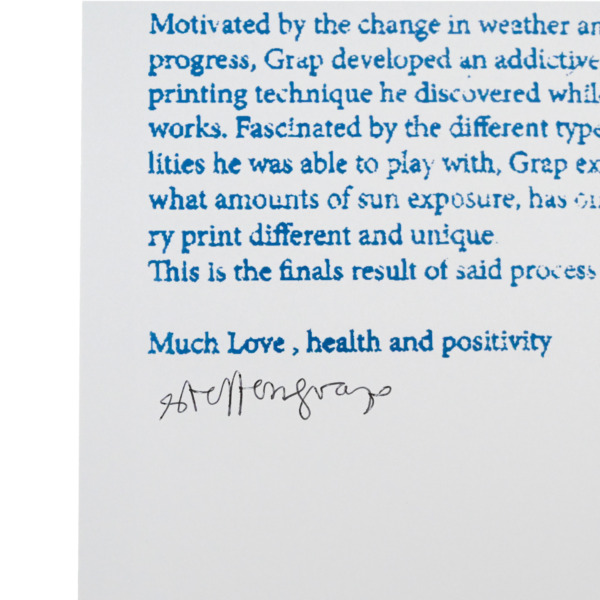 Motivated by the change in weather an
progress, Grap developed an addictive
printing technique he discovered whil
works. Fascinated by the different type
lities he was able to play with, Grap ex
what amounts of sun exposure, has
ry print different and unique
This is the finals result of said process
Much Love , health and positivity
steffengrap